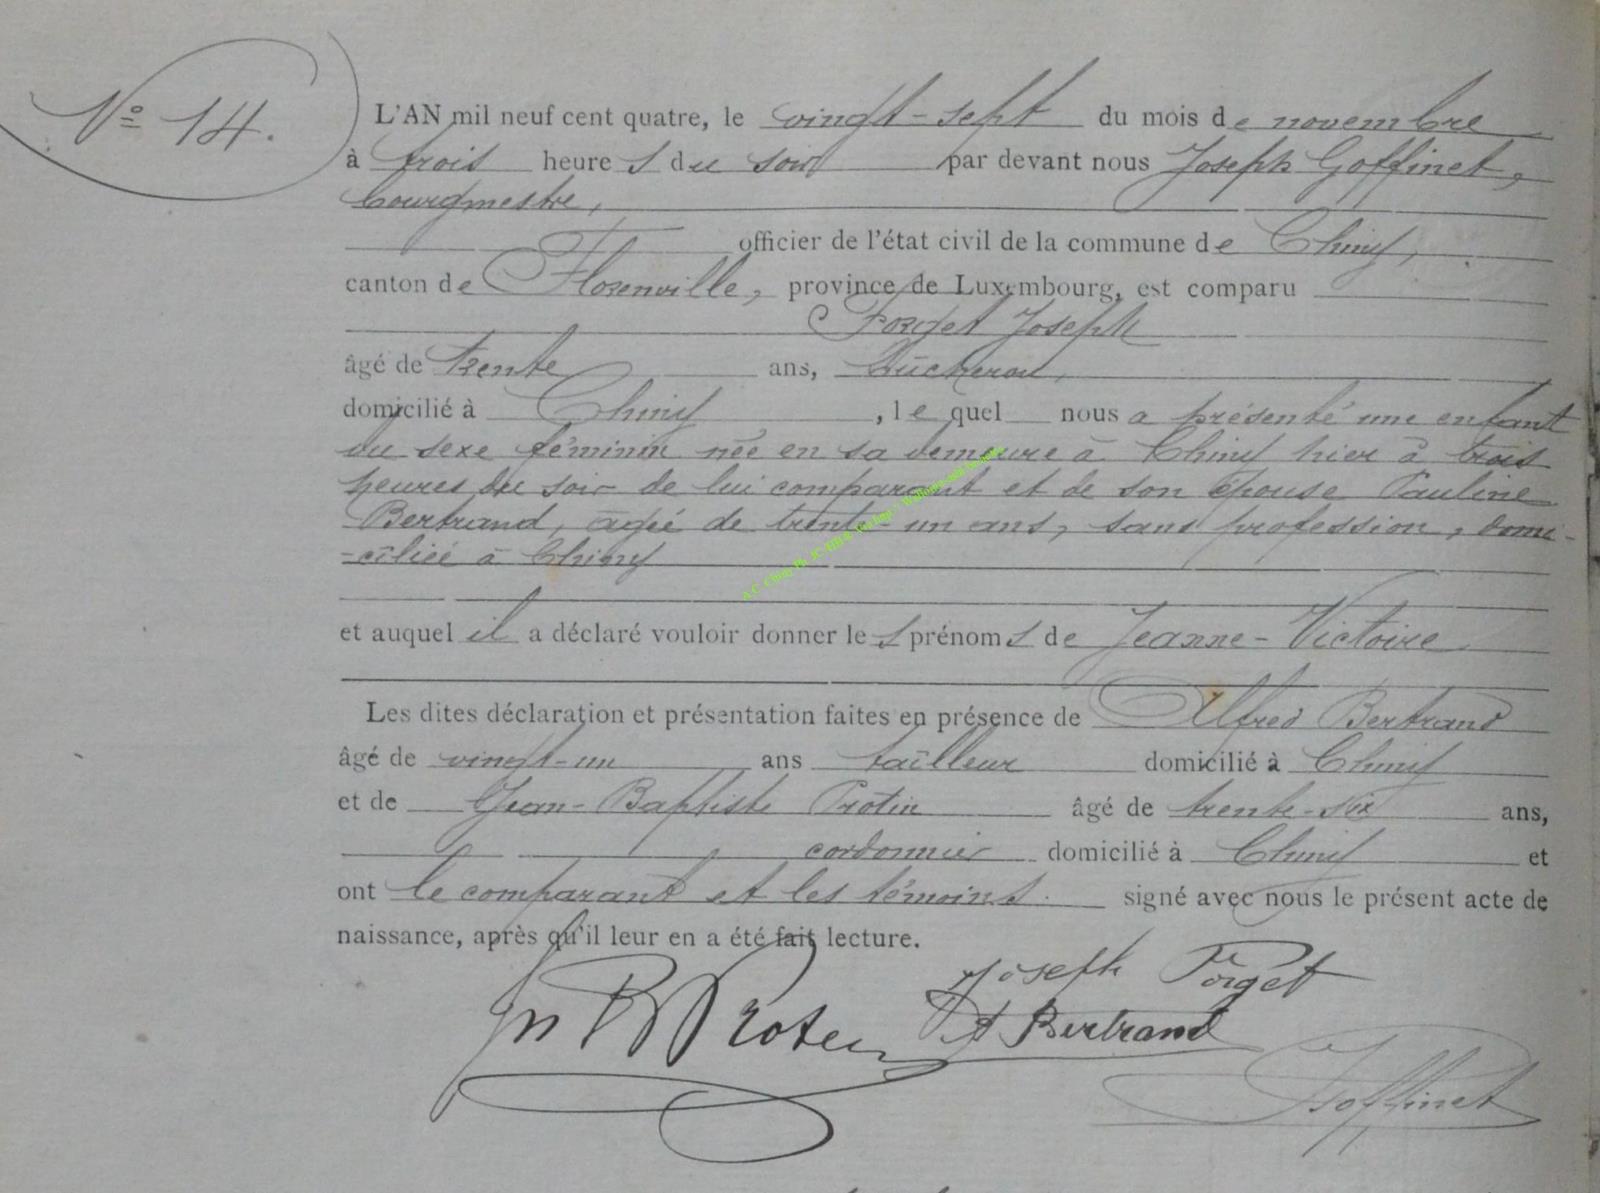 N° 14.
L'AN mil neuf cent quatre, le vingt-sept du mois de novembre
à trois heures du soir par devant nous Joseph Goffinet,
bourgmestre,
officier de l'état civil de la commune de Chiny,
canton de Florenville, province de Luxembourg, est comparu
Forget Joseph
âgé de trente ans, bûcheron,
domicilié à Chiny, lequel nous a présenté une enfant
du sexe féminin née en sa demeure à Chiny hier à trois
heures du soir de lui comparant et de son épouse Pauline
Bertrand, agée de trente-un ans, sans profession, domi-
-ciliée à Chiny
et auquel il a déclaré vouloir donner les prénoms de Jeanne-Victoire
Les dites déclaration et présentation faites en présence de Alfred Bertrand
âgé de vingt-un ans tailleur domicilié à Chiny
et de Jean-Baptiste Protin âgé de trente-six ans,
cordonnier domicilié à Chiny et
ont le comparant et les témoins signé avec nous le présent acte de
naissance, après qu'il leur en a été fait lecture.
Joseph Forget
Jn B Protin A Bertrand
J Goffinet